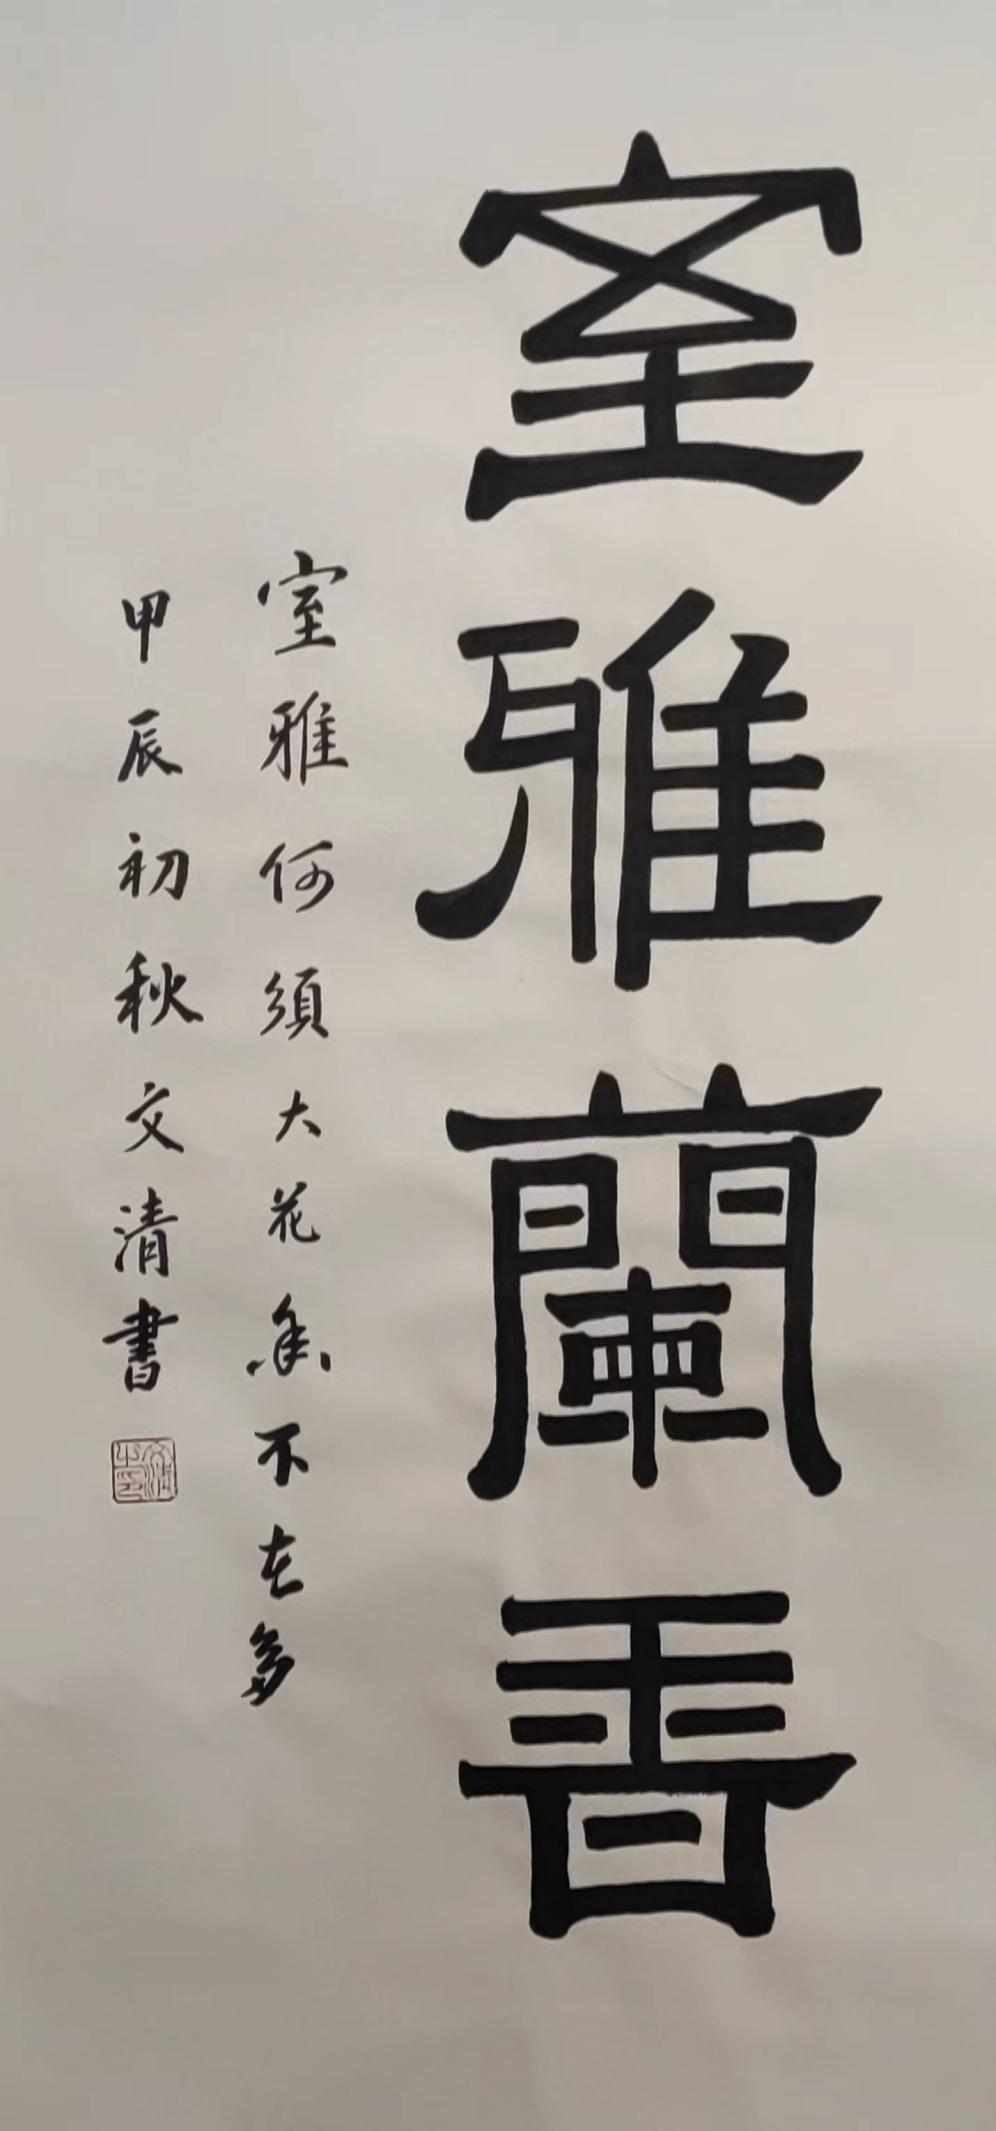 室雅蘭香
室雅何須大花香不在多
甲辰初秋文清書
文清之印